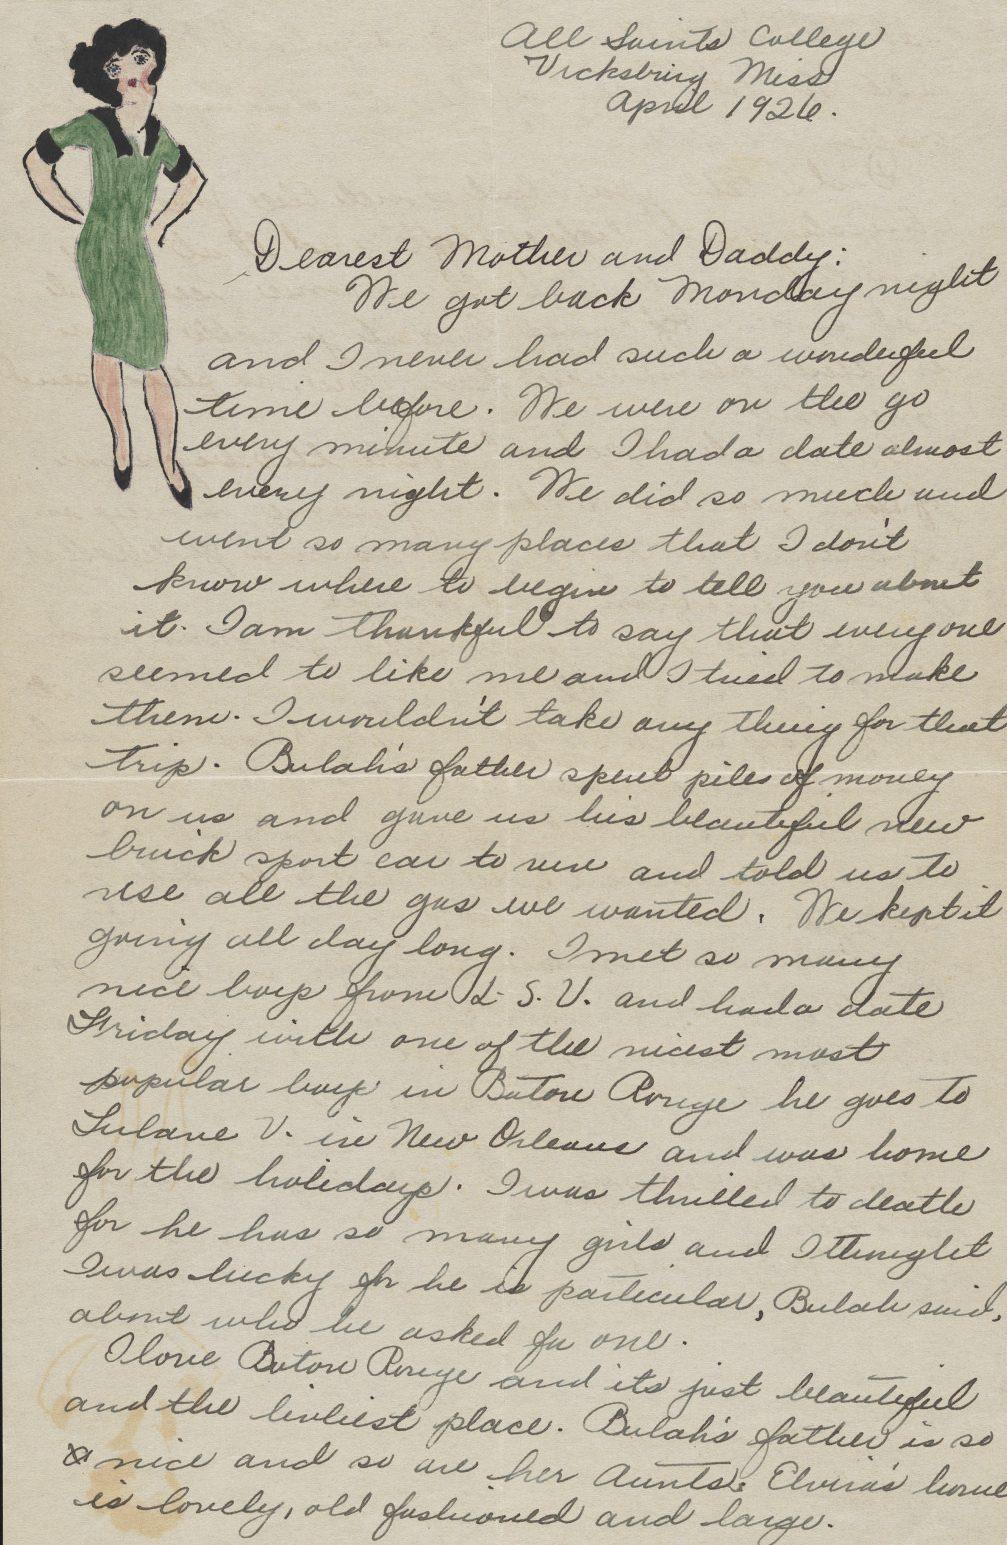 All Saints College
Vicksburg Miss
April 1926.
Dearest Mother and Daddy:
We got back Monday night
and I never had such a wonderful
time before. We were on the go
every minute and I had a date almost
every night. We did so much and
went so many places that I don't
know where to begin to tell you about
it. I am thankful to say that everyone
seemed to like me and I tried to make
them. I wouldn't take any thing for that
trip. Bulah's father spent piles of money
on us and gave us his beautiful new
buick sport car to run and told us to
use all the gas we wanted. We kept it
going all day long. I met so many
nice boys from L. S. U. and had a date
Friday with one of the nicest most
popular boys in Baton Rouge he goes to
Tulane U. in New Orleans and was home
for the holidays. I was thrilled to death
for he has so many girls and I thought
I was lucky for he is particular, Bulah said,
about who he asked for one.
I love Baton Rouge and its just beautiful
and the livliest place. Bulah's father is so
nice and so are her Aunts. Elvira's home
is lovely, old fashioned and large.